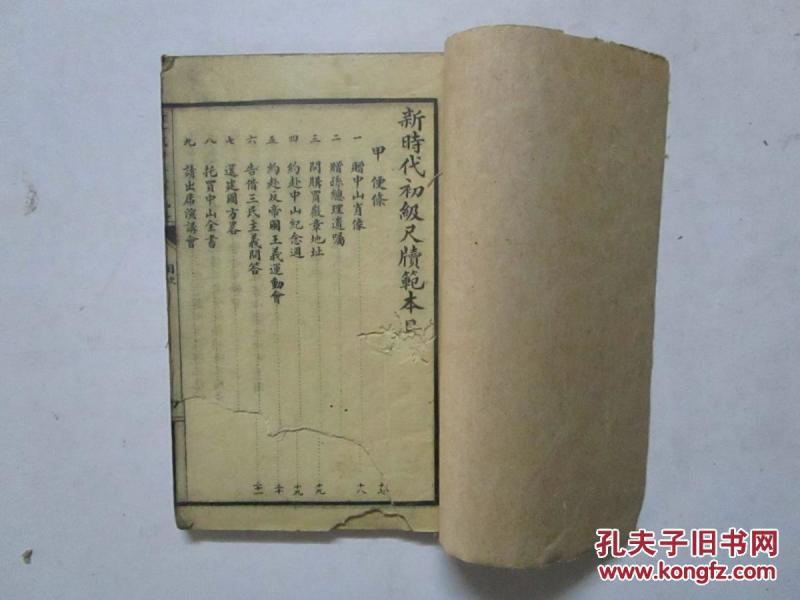 新時代初級尺牘範本目
甲 便條
一 贈中山肖像
二 贈孫總理遺囑 十八
三 問購買徽章地址 十九
四 約赴中山紀念週 十九
五 約赴反帝國主義運動會 二十
六 告借三民主義問答 二十一
七 還建國方畧
八 托買中山全書
九 請出席演講會
目次
孔夫子旧书网
www.kongfz.com